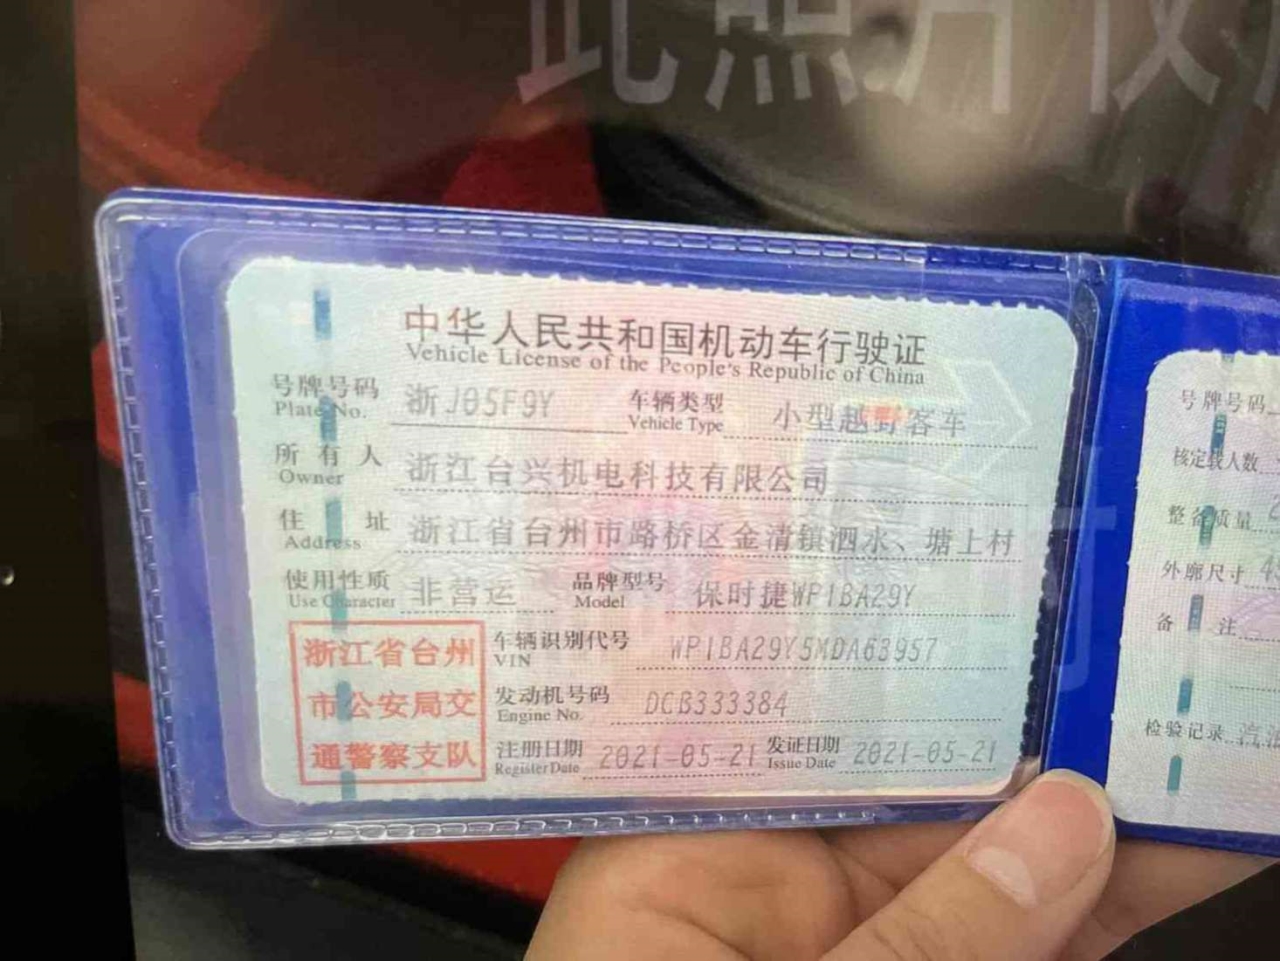 此照片仅
中华人民共和国机动车行驶证
Vehicle License of the People's Republic of China
号牌号码 浙J05F9Y 车辆类型 小型越野客车
Plate No. Vehicle Type
所有人 浙江台兴机电科技有限公司
Owner
住址 浙江省台州市路桥区金清镇泗水、塘上村
Address
使用性质 非营运 品牌型号 保时捷WP1BA29Y
Use Character Model
浙江省台州
市公安局交
通警察支队
车辆识别代号 WP1BA29Y5MDA63957
VIN
发动机号码 DCB333384
Engine No.
注册日期 2021-05-21 发证日期 2021-05-21
Register Date Issue Date
号牌号码
核定载人数
整备质量
外廓尺寸
备注
检验记录